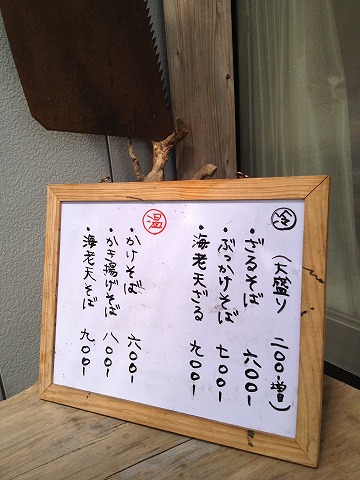 冷 （大盛り 二〇〇-増）
・ざるそば 六〇〇-
・ぶっかけそば 七〇〇-
・海老天ざる 九〇〇-
温
・かけそば 六〇〇-
・かき揚げそば 八〇〇-
・海老天そば 九〇〇-